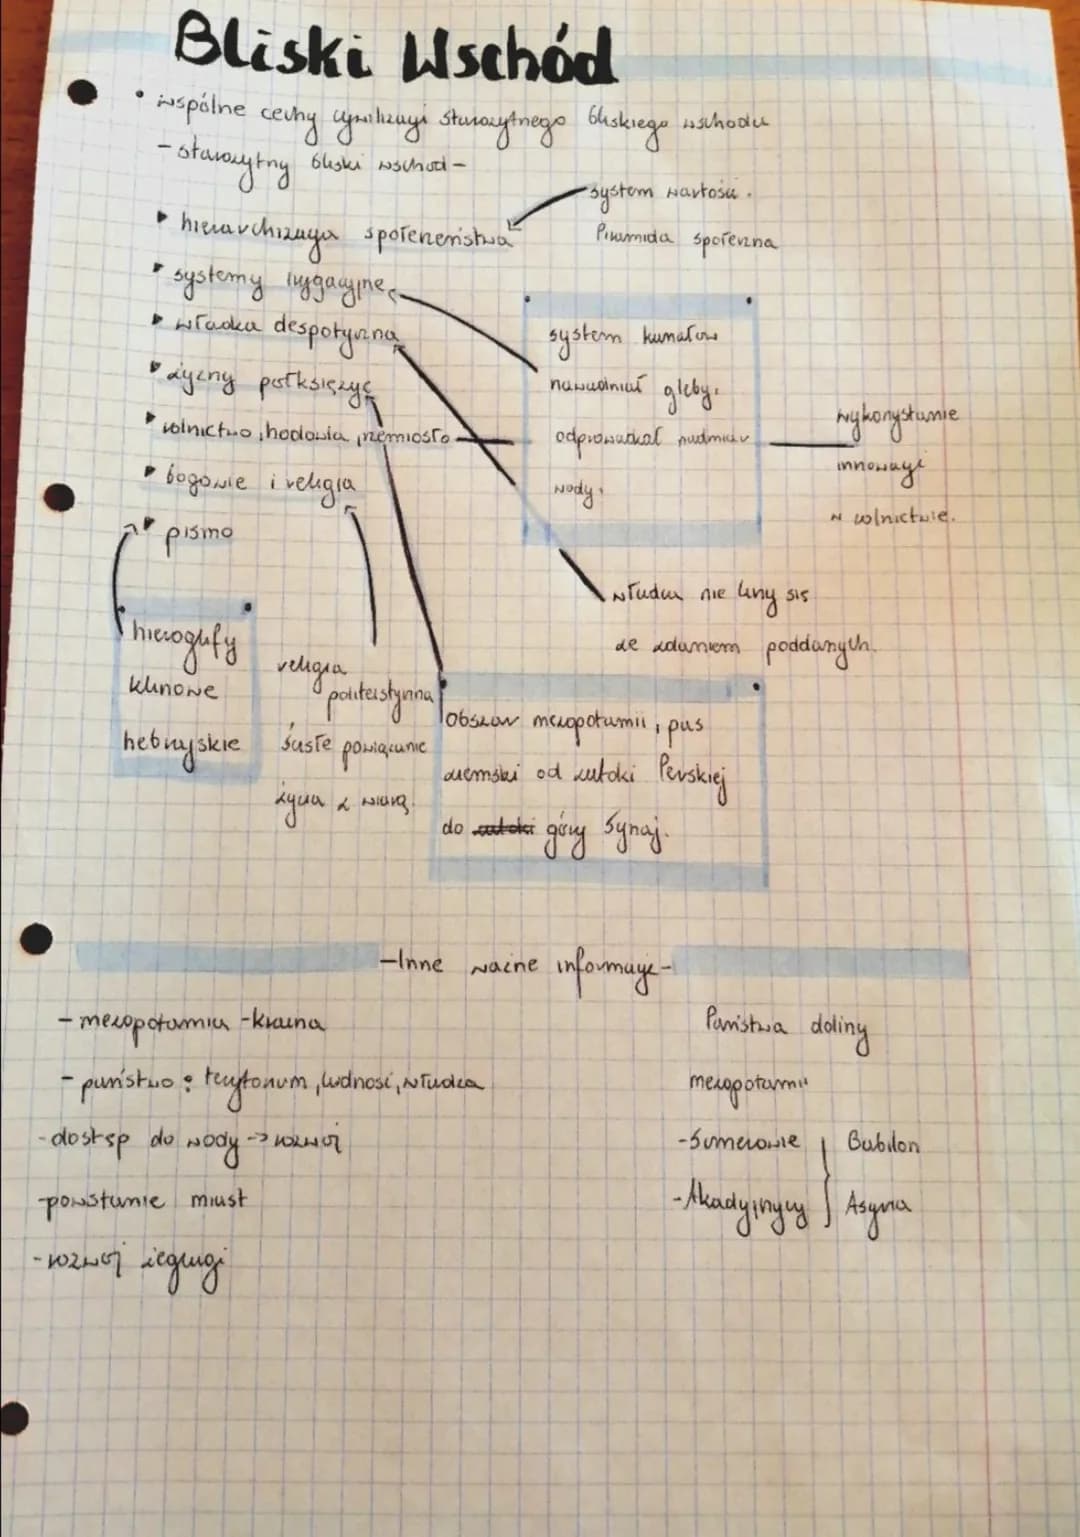 Bliski Wschód
• wspólne cechy cywilizacji starożytnego bliskiego wschodu
- starożytny bliski wschód -
system wartości.
Piramida społeczna
▸ hierarchizacja społeczeństwa
▸ systemy irygacyjne
▸ władza despotyczna
▸ żyzny półksiężyc
▸ rolnictwo, hodowla, rzemiosło
▸ bogowie i religia
▸ pismo
system kanałów
nawadniał gleby,
odprowadzał nadmiar
wody,
wykorzystanie
innowacji
w rolnictwie.
władca nie liczy się
ze zdaniem poddanych.
hieroglify
klinowe
hebrajskie
religia
politeistyczna
ścisłe powiązanie
życia z wiarą.
Obszar mezopotamii, pas
ziemski od zatoki Perskiej
do zatoki góry Synaj.
-Inne ważne informacje-
- mezopotamia - kraina
- państwo: terytorium, ludność, władza
- dostęp do wody -> rozwój
- powstanie miast
- rozwój żeglugi
Państwa doliny
mezopotamii
- Sumerowie } Babilon
- Akadyjczycy } Asyria